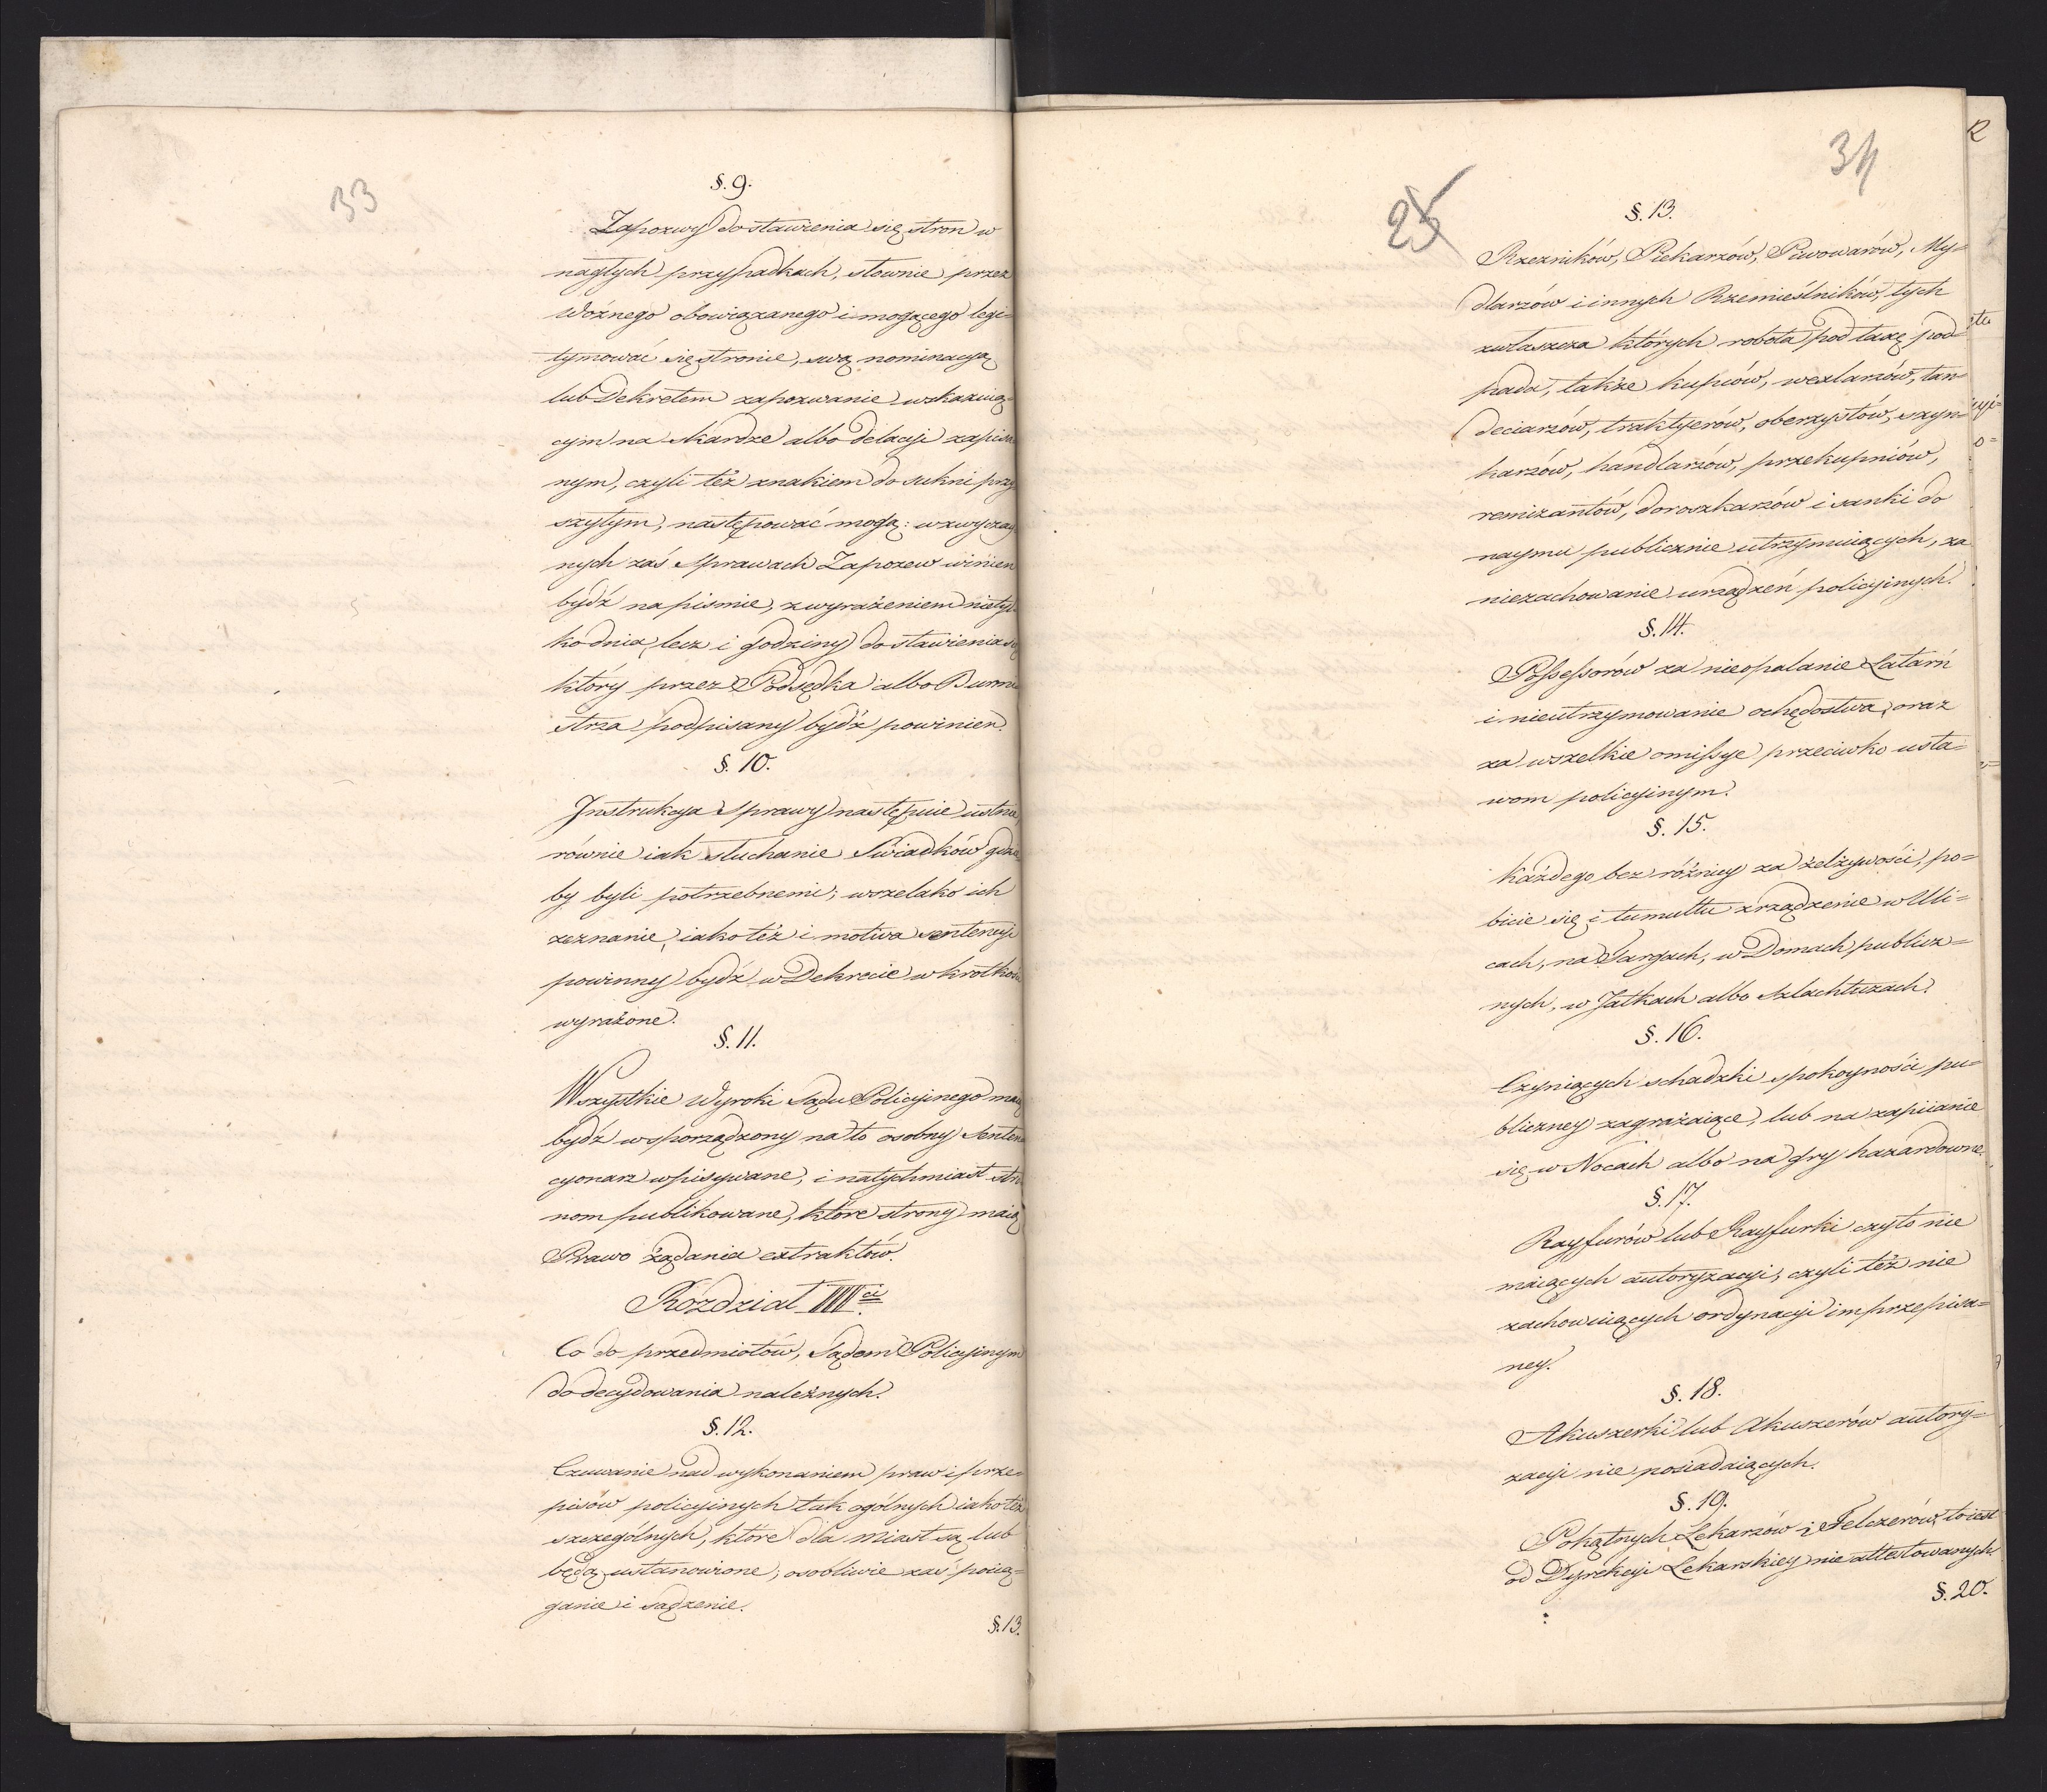 33
§. 9.
Zapozwy do stawienia się stron w
nagłych przypadkach, słownie przez
Woźnego obowiązanego i mogącego legi-
tymować się stronie, swą nominacyą
lub Dekretem zapozwanie wskazuią-
cym na skardze albo delacyi zapisa
nym, czyli też znakiem do sukni przy
szytym, następować mogą: w zwyczay
nych zaś Sprawach Zapozew winien
bydź na piśmie, z wyrażeniem nietyl
ko dnia, lecz i godziny do stawienia się
który przez Podsędka albo Burmi
strza podpisany bydź powinien.
§. 10.
Instrukcya Sprawy nastęPuie ustnie,
równie iak słuchanie Świadków gdzie
by byli potrzebnemi; wszelako ich
zeznanie, iako też i motiva sentencyi
powinny bydź w Dekrecie w krotkości
wyrażone.
§. 11.
Wszystkie Wyroki Sądu Policyinego maią
bydź w sporządzony na to osobny Senten
cyonarz wpisywane, i natychmiast stro
nom publikowane, które strony maią
Prawo żądania extraktów.
Rozdział IIII ci
Co do przedmiotów, Sądom Policyinym
do decydowania należnych.
§. 12.
Czuwanie nad wykonaniem praw i prze-
pisów policyinych tak ogólnych iako też
szczególnych, które dla miast są lub
będą ustanowione, osobliwie zaś pocią-
ganie i sądzenie.
§. 13.
34
25
§. 13.
Rzezników, Piekarzów, Piwowarów, My-
dlarzów i innych Rzemieślników, tych
zwłaszcza których robota pod taxę pod-
pada, także kupców, wexlarzów, tan-
deciarzów, traktyerów, oberzystów, szyn-
karzów, handlarzów, przekupniów,
remizantów, doroszkarzów i sanki do
naymu publicznie utrzymuiących, za
niezachowanie urządzeń policyinych.
§. 14.
Possessorów za nieopalanie Latarń
i nieutrzymowanie ochędostwa, oraz
za wszelkie omissye przeciwko usta-
wom policyinym.
§. 15.
Każdego bez różnicy za zelżywości, po-
bicie się i tumultu zrządzenie w Uli-
cach, na Targach, w Domach publicz-
nych, w Jatkach albo Szlachtuzach.
§. 16.
Czyniących schadzki spokoyności pu-
bliczney zagrażaiące, lub na zapiianie
się w Nocach albo na gry hazardowne.
§. 17.
Rayfurów lub Rayfurki czyto nie
maiących autoryzacyi, czyli też nie
zachowuiących ordynacyi im przepisa-
ney.
§. 18.
Akuszerki lub Akuszerów autory-
zacyi nie posiadaiących.
§. 19.
Pokątnych Lekarzów i Felczerów, toiest
od Dyrekcyi Lekarskiey nie attestowanych.
§. 20.